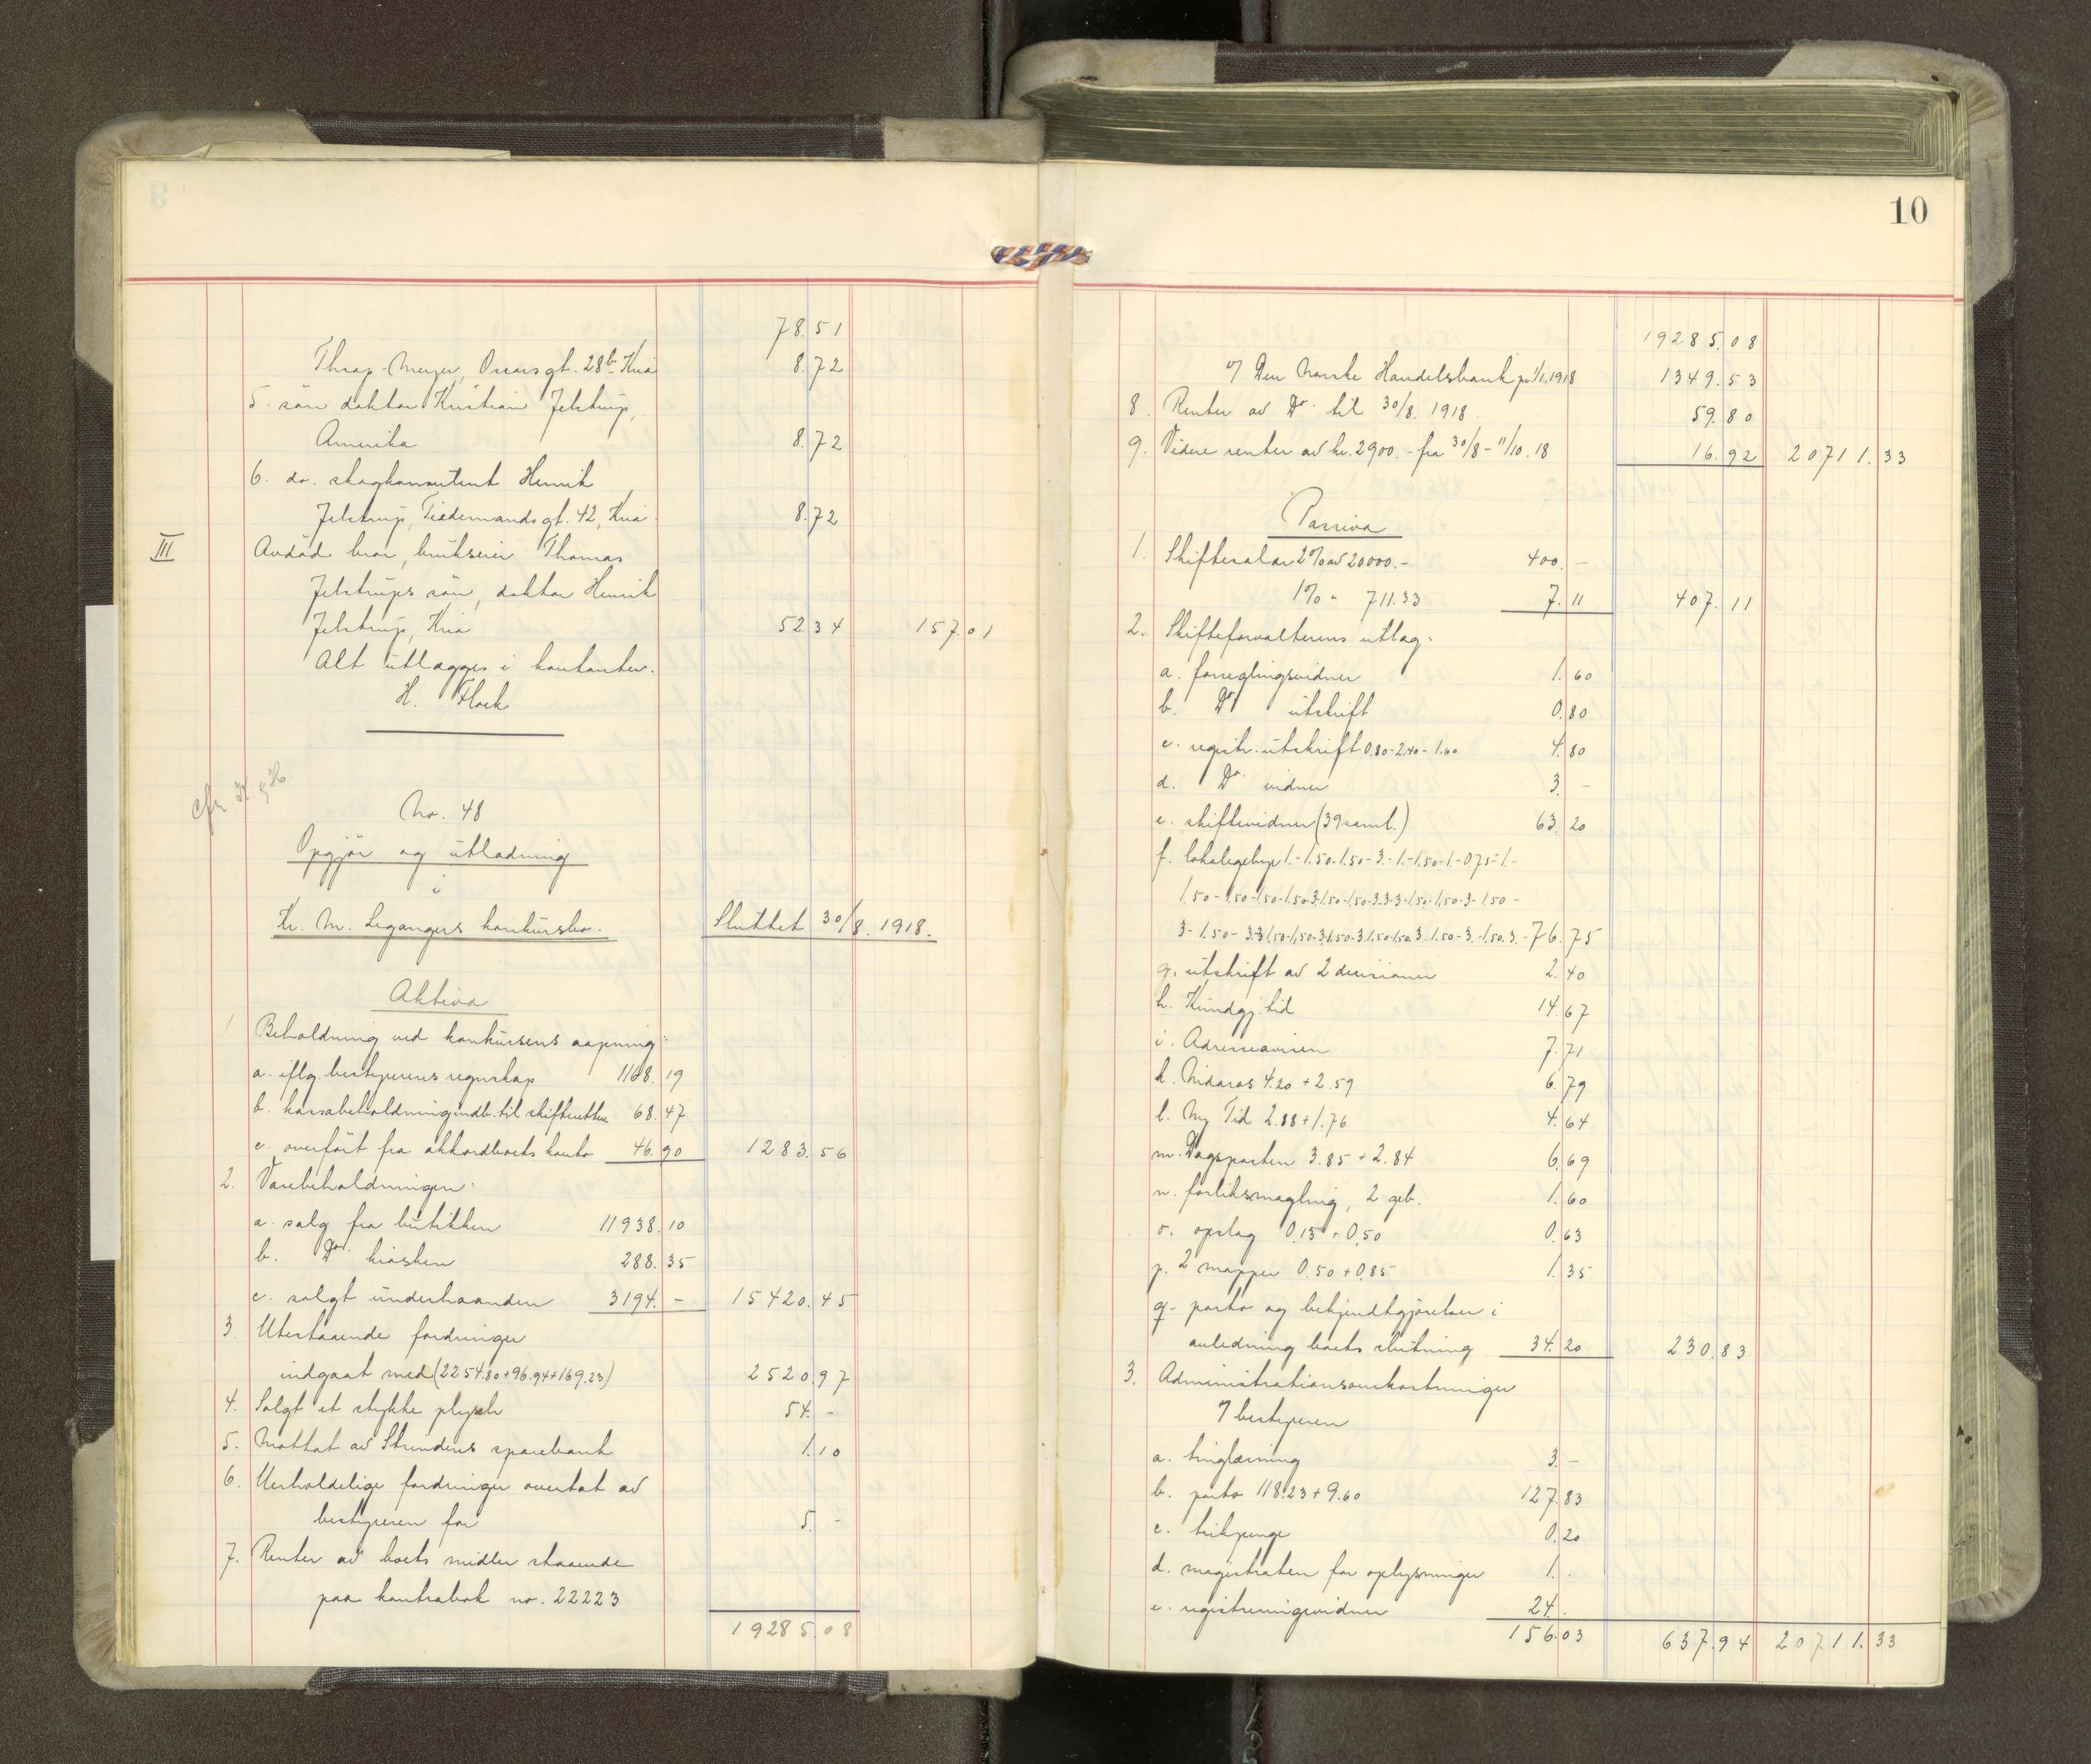 78.51
Thrap-Meyer, Oscarsgt. 28b Kria 8.72
5. søn doktor Kristian Jelstrup,
Amerika 8.72
6. do. skogkonsulent Henrik
Jelstrup, Tidemandsgt. 42, Kria 8.72
III Avdød bror, brukseier Thomas
Jelstrups søn, doktor Henrik
Jelstrup, Kria 52.34 157.01
Alt utlægges i kontanter.
H. Flock
cfr
No. 48
Opgjør og utlodning
i
Kr. M. Legangers konkursbo. Sluttet 30/8. 1918.
Aktiva
1 Beholdning ved konkursens aapning:
a. iflg. bestyrerens regnskap 1168.19
b. kassabeholdning indb. til skifteretten 68.47
c. overført fra akkordboets konto 46.90 1283.56
2. Varebeholdningen:
a. salg fra butikken 11938.10
b. Do. kiosken 288.35
c. solgt underhaanden 3194.- 15420.45
3. Utestaaende fordringer
indgaat med (2254.80+96.94+169.23) 2520.97
4. Solgt et stykke plysch 54.-
5. Mottat av Strindens sparebank 1.10
6. Uerholdelige fordringer overtat av
bestyreren for 5.-
7. Renter av boets midler staaende
paa kontrabok no. 22223
19285.08
10
19285.08
i/ Den Norske Handelsbank pr. 1/1.1918 1349.53
8. Renter av Do. til 30/8. 1918 59.80
9. Videre renter av kr. 2900.- fra 30/8 - 11/10.18 16.92 20711.33
Passiva
1. Skiftesalær 2% av 20000.- 400.-
1% " 711.33 7.11 407.11
2. Skifteforvalterens utlæg:
a. forseglingsvidner 1.60
b. Do utskrift 0.80
c. registr. utskrift 0.80-2.40-1.60 4.80
d. Do. vidner 3.-
e. skiftevidner (39 saml.) 63.20
f. lokalegebyr 1.-1.50-1.50-3.-1.-1.50-1.-0.75-1.-
1.50-1.50-1.50-1.50-3-1.50-1.50-3.3.3-1.50-1.50-3-1.50-
3-1.50-3.3.1.50-1.50-3.1.50-3.1.50-1.50.3.1.50-3.-1.50.3.-76.75
g. utskrift av 2 decisioner 2.40
h. Kundgj.tid 14.67
i. Adresseavisen 7.71
k. Nidaros 4.20 + 2.59 6.79
l. Ny Tid 2.88+1.76 4.64
m. Dagsposten 3.85 + 2.84 6.69
n. forliksmægling, 2 geb. 1.60
o. opslag 0.13 + 0.50 0.63
p. 2 mapper 0.50 + 0.85 1.35
q. porto og bekjendtgjørelser i
anledning boets slutning 34.20 230.83
3. Administrationsomkostninger
t/ bestyreren
a. tinglæsning 3.-
b. porto 118.23 + 9.60 127.83
c. trikpenge 0.20
d. magistraten for oplysninger 1.
e. registreringsvidner 24.
156.03 637.94 20711.33